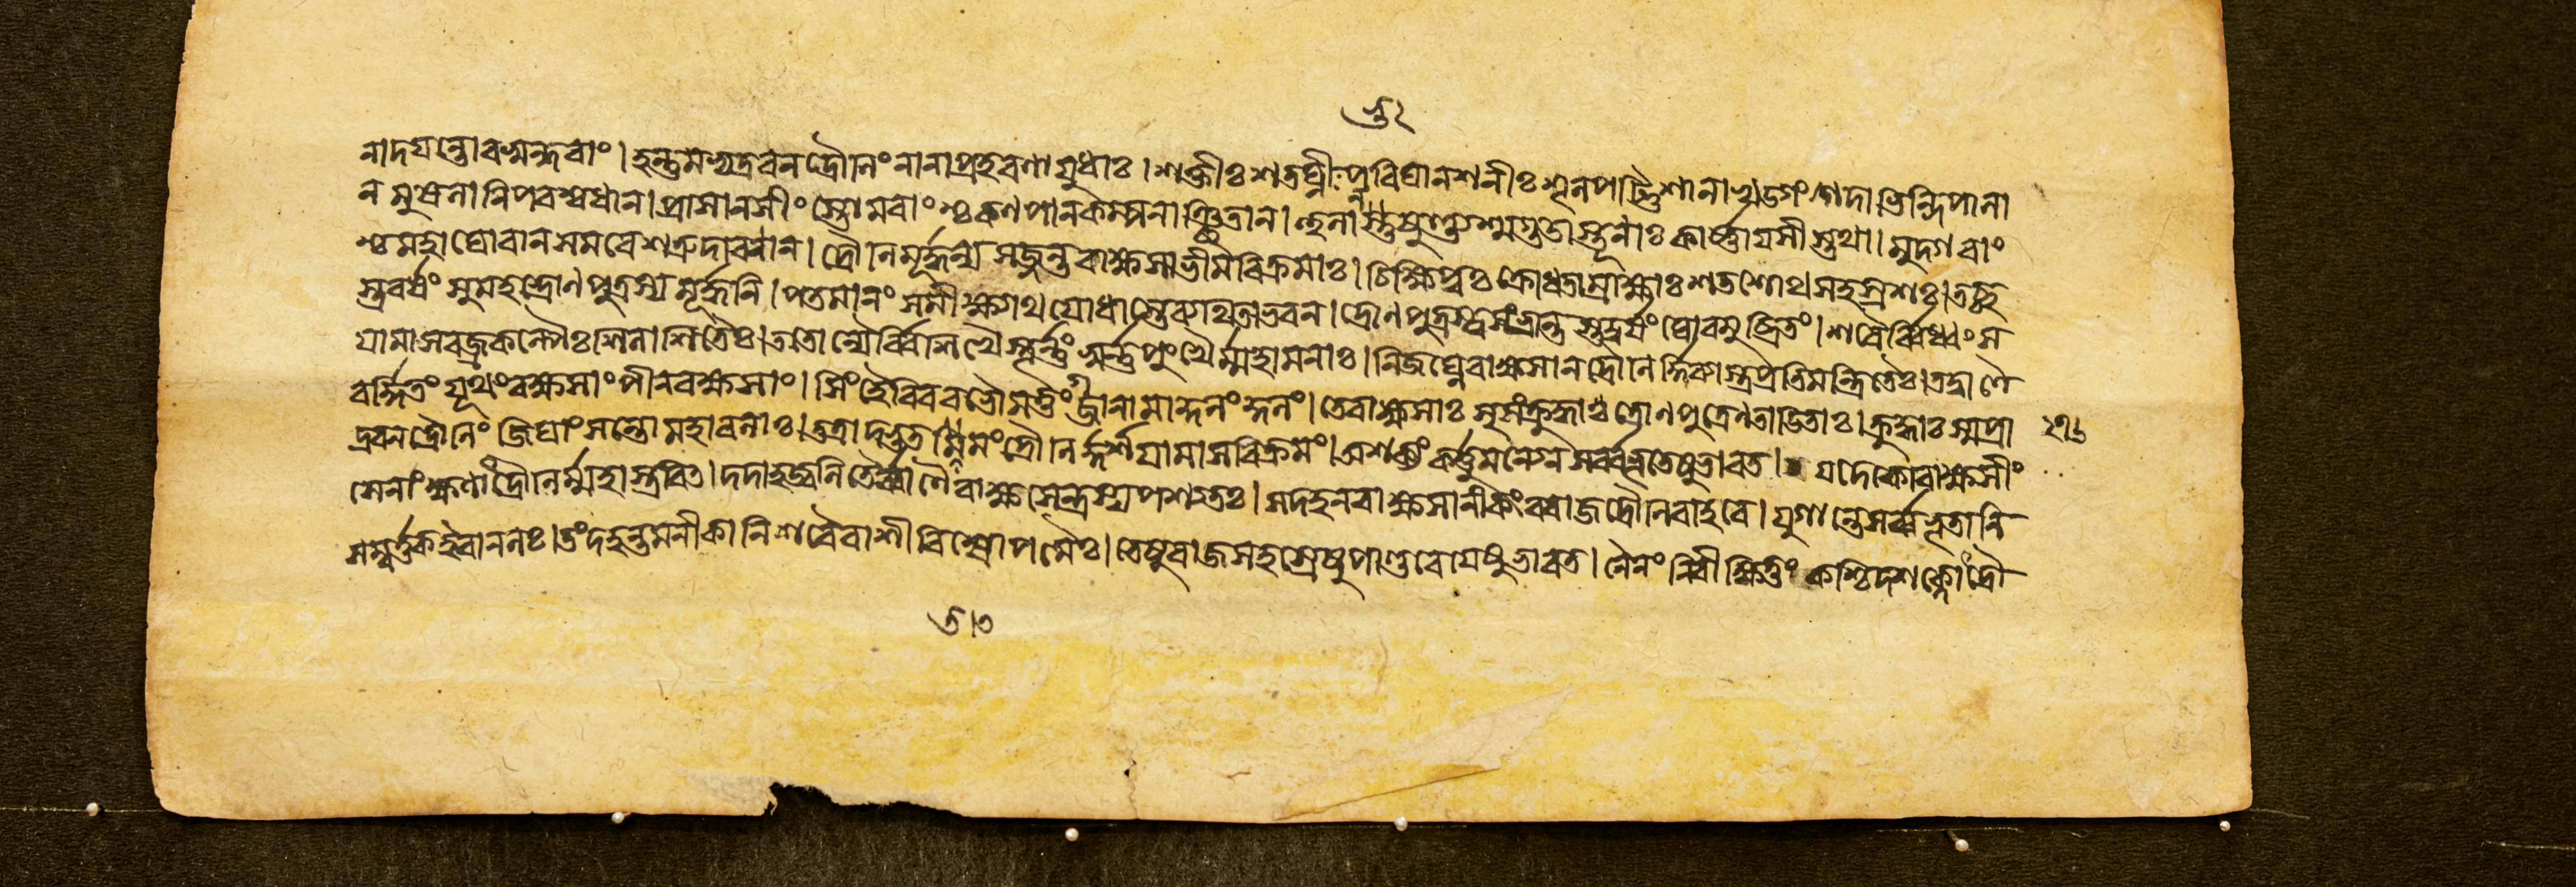 নাদযন্তোবসুন্দবাং। হন্তুমভ্যদ্রবনদ্রৌনিং নানাপ্রহবণাযুধাঃ। শক্তীঃ শতঘ্নীঃ পবিঘানশনীঃ শূনপাট্টিশানা খড্গং গদা ভিন্দিপানা
ন মুষনানিপবশ্বধান। প্রাসানসীং স্তোমবাং শ্চকণপানকম্পনা ঞ্ছিতান। স্থূনাং কার্ষ্ণাযসীস্তথা। মুদ্গবাং
শ্চমহাঘোবানসমবেশত্রুদাবনান। দ্রৌনিমূর্দ্ধন্য সজন্তবাক্ষসাভীমবিক্রমাঃ। চিক্ষিপুঃ ক্রোধতাম্রাক্ষাঃ শতশোথসহস্রশঃ। তচ্ছ
স্ত্রবর্ষং সুমহদ্দ্রোণপুত্রস্য মূর্দ্ধনি। পতমানং সমীক্ষ্যাথযোধাস্তেব্যথিতাভবন। দ্রোণপুত্রস্ত্বসংভ্রান্ত স্তদ্বর্ষং ঘোবমুচ্ছ্রিতং। শবৈর্ব্বিধ্বংস
যামাসবজ্রকল্পৈঃ শিনাশিতৈঃ। ততোন্যৈর্ব্বিশিখৈস্তূর্ন্নং স্বর্ন্নপুংখৈর্ম্মহামনাঃ। নিজঘ্নেবাক্ষসানদ্রৌনির্দ্দিব্যাস্ত্রপ্রতিমন্ত্রিতৈঃ। তদ্বাণৈ
বর্দ্দিতং যূথং বক্ষসাং পীনবক্ষসাং। সিংহৈবিববভৌমত্তং গজানামাকুনংকুনং। তেবাক্ষসাঃ সুসংক্রুদ্ধাদ্রোণপুত্রেনতাডিতাঃ। ক্রুদ্ধাঃ স্মপ্রা
দ্রবনদ্রৌনিং জিঘাংসন্তোমহাবনাঃ। তত্রাদ্ভুতমিমংদ্রৌনির্দ্দর্শযামাসবিক্রমং। অশক্যং কর্ত্তুমন্যেনসর্ব্বভূতেষুভাবত। যদেকোবাক্ষসীং ২৭১
সেনাং ক্ষণাদ্দ্রৌনির্ম্মহাস্ত্রবিত। দদাহজ্বনিতৈর্ব্বাণৈবাক্ষসেন্দ্রস্যপশ্যতঃ। সদহনবাক্ষসানীকং ববাজদ্রৌনিবাহবে। যুগান্তেসর্ব্বভূতানি
সম্বর্ত্তকইবাননঃ। তংদহন্তমনীকানিশবৈবাশীবিষোপমৈঃ। তেষুবাজসহস্রেষুপাণ্ডবেযেষুভাবত। নৈনং নিবীক্ষিতুং কশ্চিদশক্নোদ্দ্রৌ